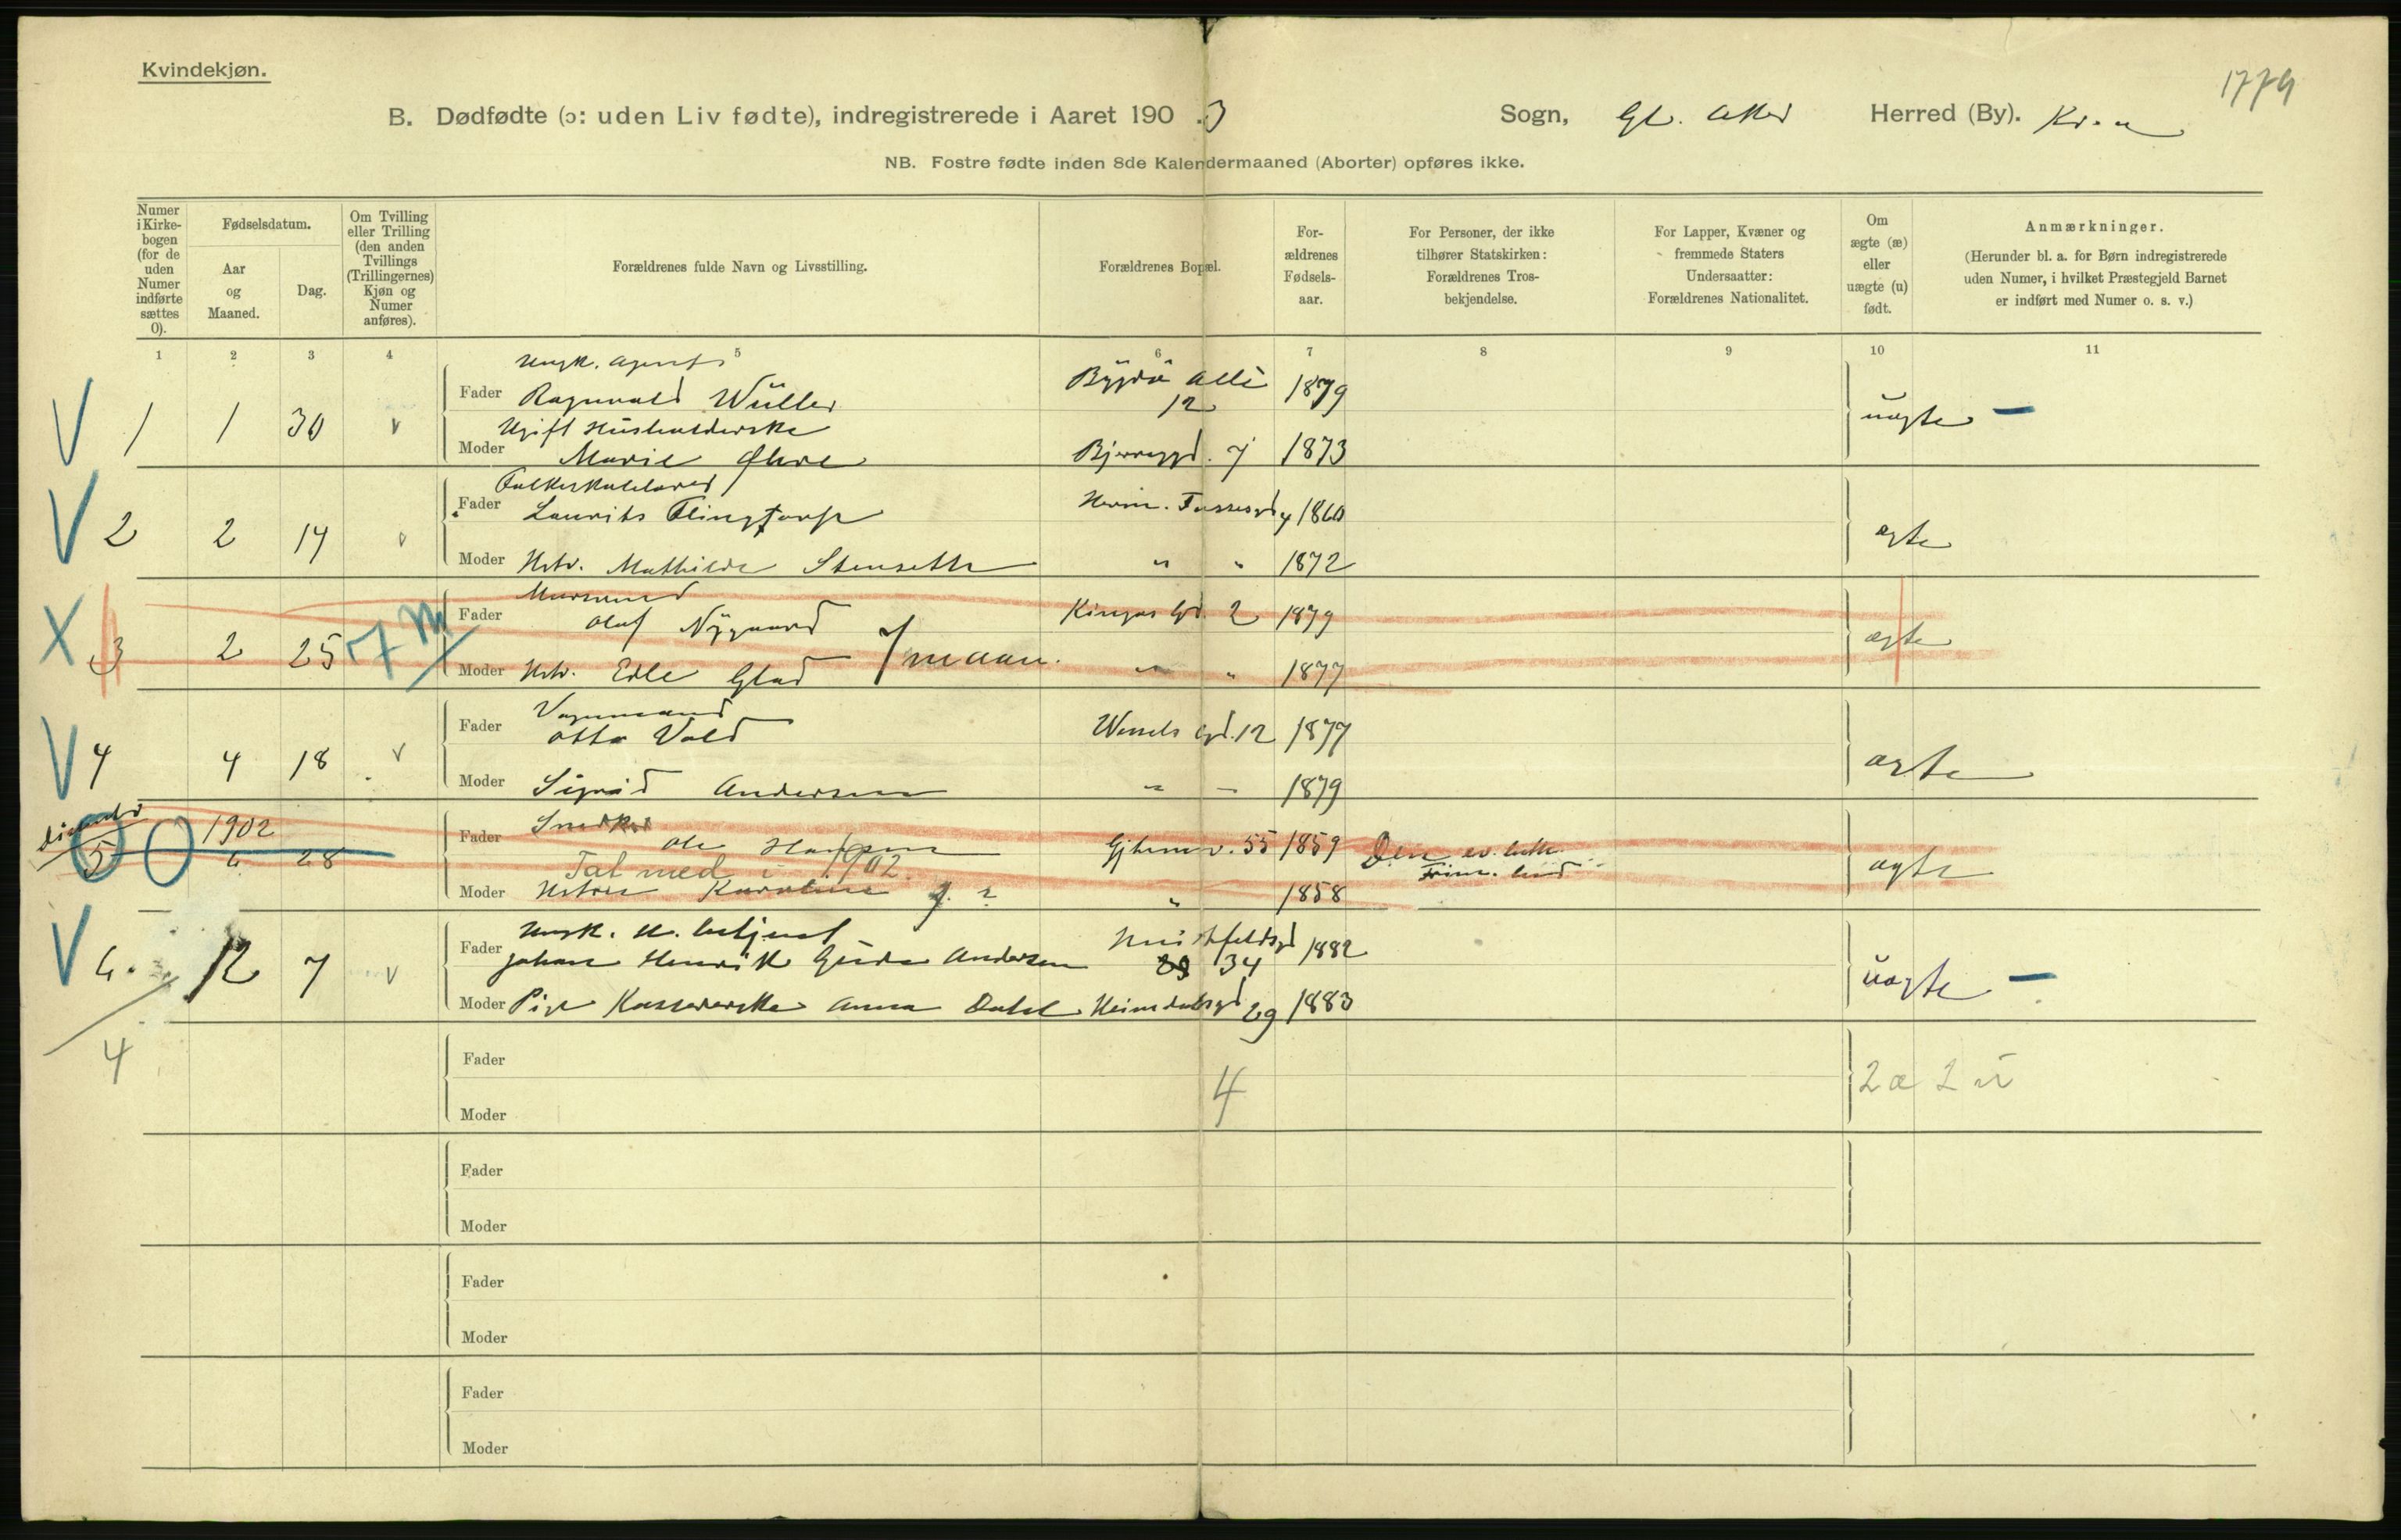 Kvindekjøn.
1779
B. Dødfødte (ɔ: uden Liv fødte), indregistrerede i Aaret 190 .3 Sogn, Gl. Aker Herred (By). Kr.a
NB. Fostre fødte inden 8de Kalendermaaned (Aborter) opføres ikke.
Numer i Kirke-bogen (for de uden Numer indførte sættes 0).
Fødselsdatum.
Aar og Maaned.
Dag.
Om Tvilling eller Trilling (den anden Tvillings (Trillingernes) Kjøn og Numer anføres).
Forældrenes fulde Navn og Livsstilling.
Forældrenes Bopæl.
For-ældrenes Fødsels-aar.
For Personer, der ikke tilhører Statskirken: Forældrenes Tros-bekjendelse.
For Lapper, Kvæner og fremmede Staters Undersaatter: Forældrenes Nationalitet.
Om ægte (æ) eller uægte (u) født.
Anmærkninger.
(Herunder bl. a. for Børn indregistrerede uden Numer, i hvilket Præstegjeld Barnet er indført med Numer o. s. v.)
1 2 3 4 5 6 7 8 9 10 11
Ungk. Agent
V 1 1 30 v Fader Ragnvald Wüller Bygdø Allé 12 1879 uægte —
Ugift Husholderske
Moder Marie Øhre Bjerregd. 7 1873
Folkeskolelærer
V 2 2 14 v Fader Laurits Flingtorp Herm. Fossesgd 4 1860 ægte
Moder Hstr. Mathilde Stenseth " " 1872
Murmand
X 3 2 25 7 M Fader Olaf Nygaard Kingos Gd. 2 1879 ægte
7 maan.
Moder Hstr. Edle Glad " " 1877
Vognmand
V 4 4 18 v Fader Otto Vold Wessels Gd. 12 1877 ægte
Moder Sigrid Andersen " " 1879
Snedker
5 0 1902 6 28 Fader Ole Hansen Gjtemv. 55 1859 Den ev. luth. Frim. ægte
Tat med i 1902.
Moder Hstru Karoline " 1858
Ungk.
V 6. 12 7 v Fader Johan Henrik Andersen 34 1882 uægte —
Moder Pige Kassererske Anna Dahl Heimdalsgd 29 1883
4 Fader 4 2 æ 2 u
Moder
Fader
Moder
Fader
Moder
Fader
Moder